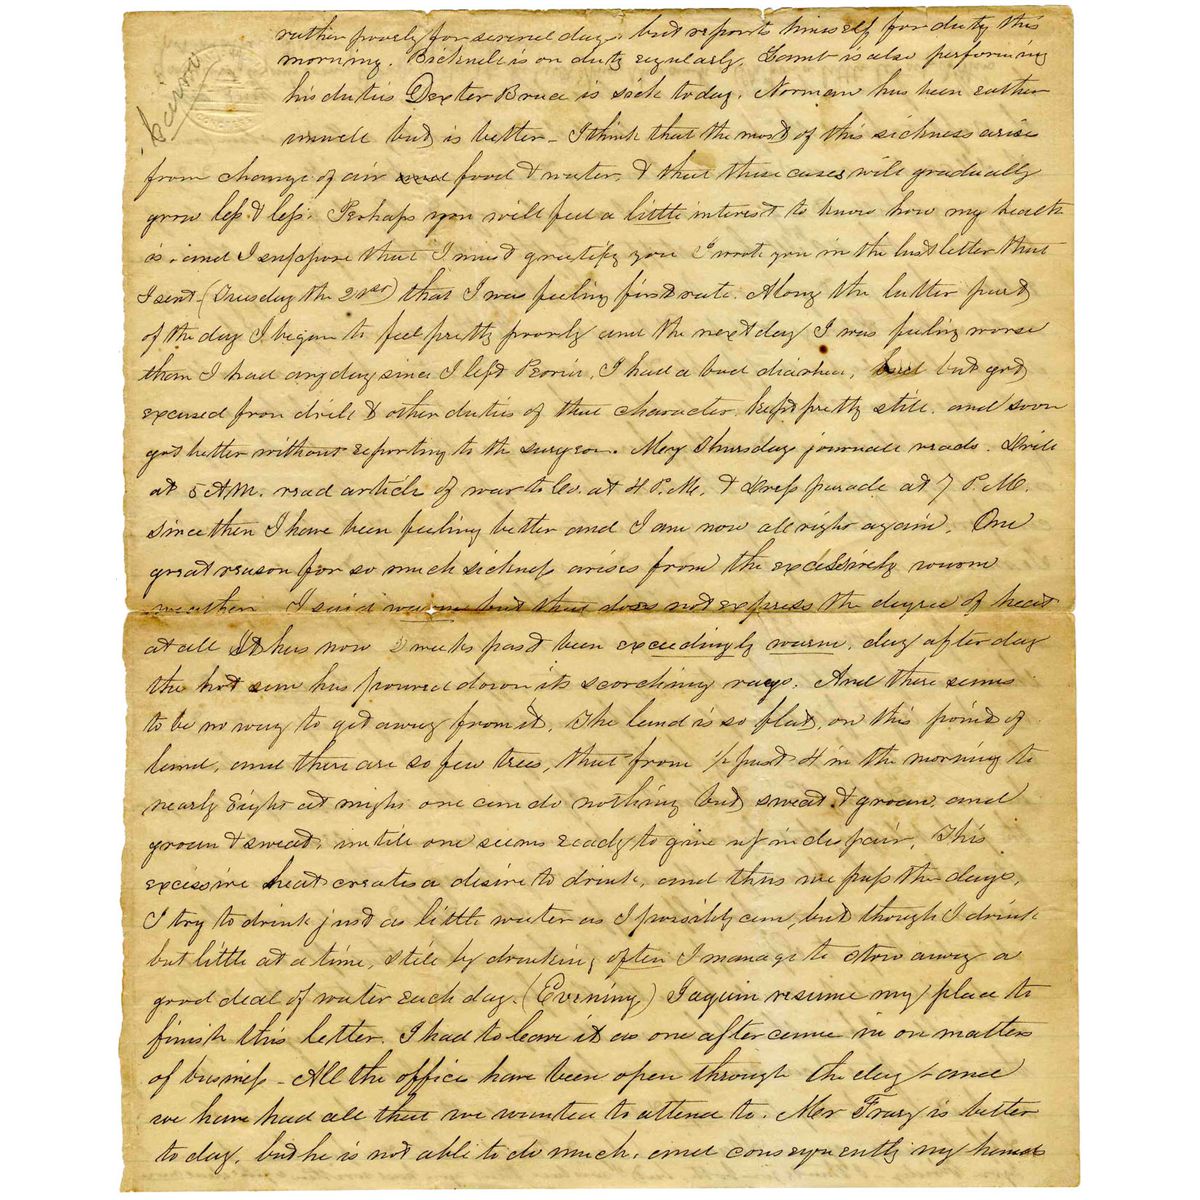 Cairo
rather poorly for several days but reports himself for duty this
morning. Bicknell is on duty regularly. Lamb is also performing
his duties Dexter Bruce is sick today. Norman has been rather
unwell but is better – I think that the most of this sickness arise
from change of air and food & water, & that these cases will gradually
grow less & less. Perhaps you will feel a little interest to know how my health
is, and I suppose that I must gratify you I wrote you in the last letter that
I sent – (Tuesday the 21st) that I was feeling first rate. Along the latter part
of the day I began to feel pretty poorly and the next day I was feeling worse
than I had any day since I left Peoria, I had a bad diarhea, but but got
excused from drill & other duties of that character, kept pretty still, and soon
got better without reporting to the surgeon. My Thursdays journal reads. Drill
at 5 A.M. read article of war to Co. at 4 P.M. & Dress parade at 7 P.M.
since then I have been feeling better and I am now all right again. One
great reason for so much sickness arises from the excessively warm
weather. I said warm but that does not express the degree of heat
at all It has now 2 weeks past been exceedingly warm, day after day
the hot sun has poured down its scorching rays. And there seems
to be no way to get away from it, The land is so flat, on this point of
land, and there are so few trees, that from ½ past 4 in the morning to
nearly Eight at night one can do nothing but sweat & groan, and
groan & sweat, untill one seems ready to give up in despair. This
excessive heat creates a desire to drink, and thus we pass the days,
I try to drink just as little water as I possibly can, but though I drink
but little at a time, still by drinking often I manage to stow away a
good deal of water each day. (Evening) I again resume my place to
finish this letter. I had to leave it as one after came in on matters
of business – All the offices have been open through the day and
we have had all that we wanted to attend to. Mr Frary is better
to day, but he is not able to do much, and consequently my hands